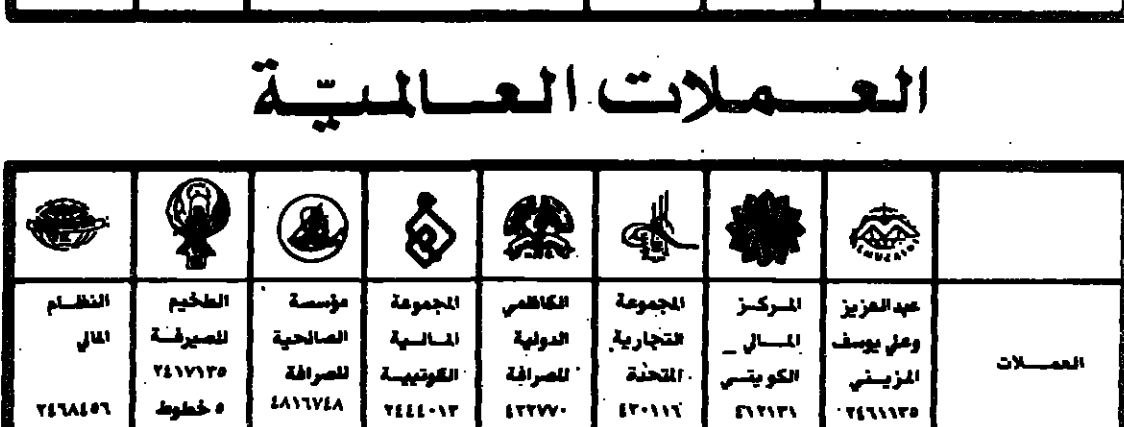 العملات العالميّة
العملات
عبدالعزيز
وعلي يوسف
المزيني
٢٤٦١١٣٥
المركز
المالي
الكويتي
٤١٢١٣١
المجموعة
التجارية
المتحدة
٤٣٠١١٦
الكاظمي
الدولية
للصرافة
٤٢٢٧٧٠
المجموعة
المالية
الكوتيبية
٢٤٤٤٠١٣
مؤسسة
الصالحية
للصرافة
٤٨١٦٧٤٨
الطخيم
للصيرفة
٢٤١٧١٣٥
٥ خطوط
النظام
المالي
٢٤٦٨٤٥٦